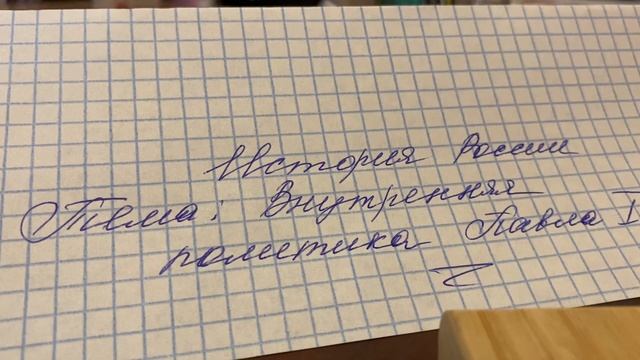 История России
Тема: Внутренняя
политика Павла I